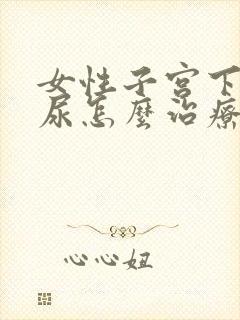 女性子宫下
尿怎麼治療
心心妞